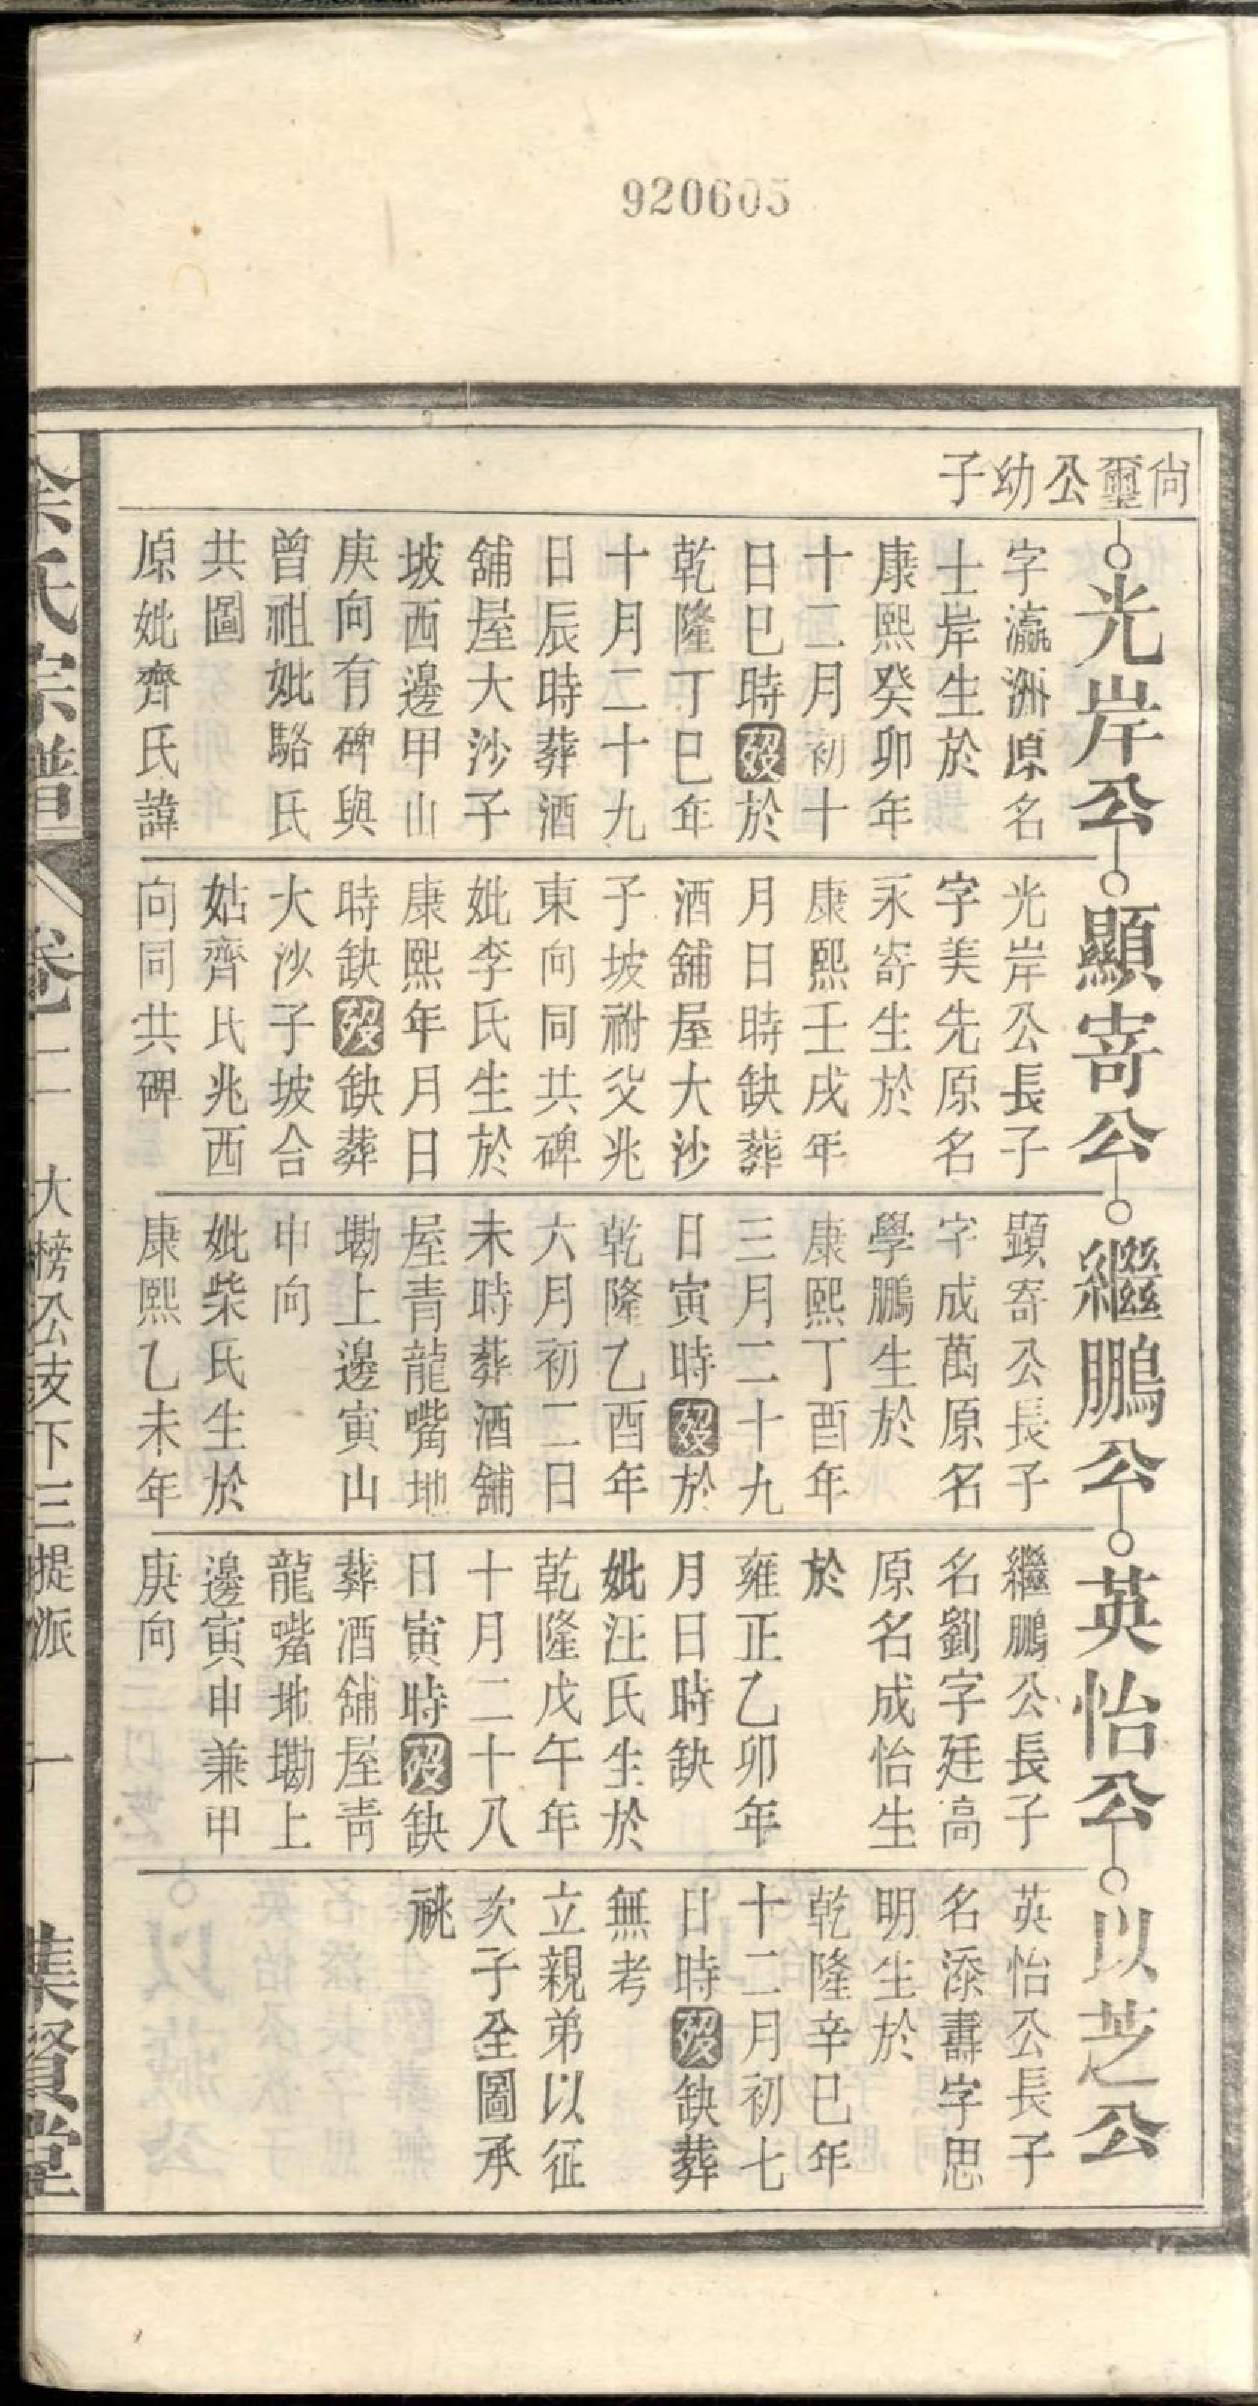 920605
尙璽公幼子
光岸公
字瀛洲原名
士岸生於
康熙癸卯年
十二月初十
日巳時歿於
乾隆丁巳年
十月二十九
日辰時葬酒
舖屋大沙子
坡西邊甲山
庚向有碑與
曾祖妣駱氏
共圖
原妣齊氏諱
顯寄公
光岸公長子
字美先原名
永寄生於
康熙壬戌年
月日時缺葬
酒舖屋大沙
子坡祔父兆
東向同共碑
妣李氏生於
康熙年月日
時缺歿缺葬
大沙子坡合
姑齊氏兆西
向同共碑
繼鵬公
顯寄公長子
字成萬原名
學鵬生於
康熙丁酉年
三月二十九
日寅時歿於
乾隆乙酉年
六月初二日
未時葬酒舖
屋青龍嘴地
塝上邊寅山
申向
妣柴氏生於
康熙乙未年
英怡公
繼鵬公長子
名劉字廷高
原名成怡生
於
雍正乙卯年
月日時缺
妣汪氏生於
乾隆戊午年
十月二十八
日寅時歿缺
葬酒舖屋青
龍嘴地塝上
邊寅申兼甲
庚向
以芝公
英怡公長子
名添壽字思
明生於
乾隆辛巳年
十二月初七
日時歿缺葬
無考
立親弟以征
次子全圖承
祧
余氏宗譜 卷二 大榜公支下三提派 一 集賢堂